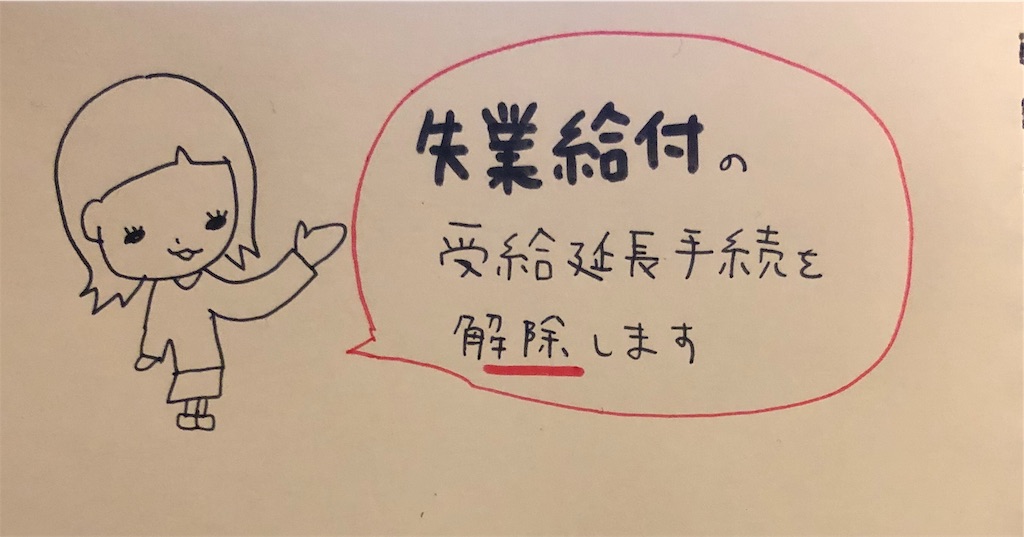 失業給付の
受給延長手続を
解除します